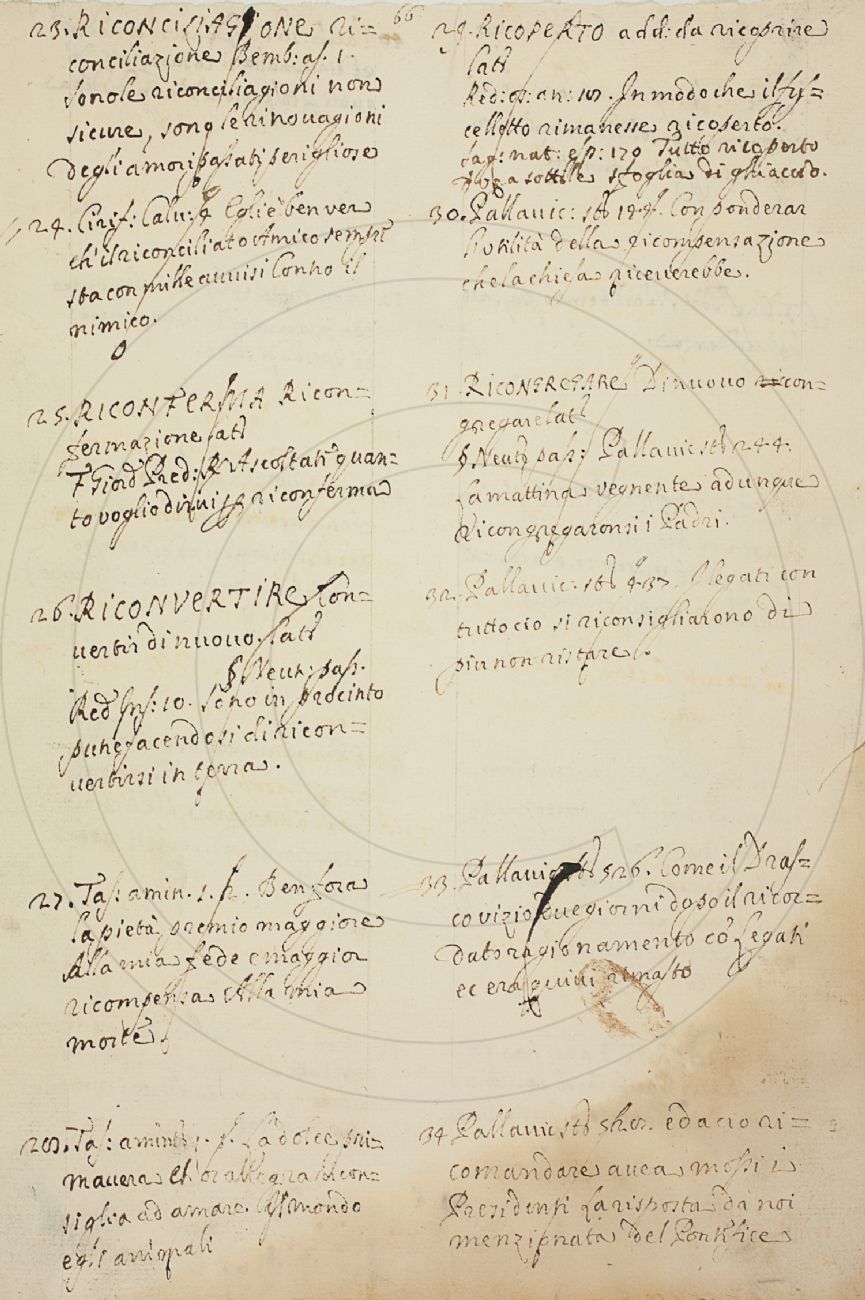 66
23. RICONCILIAGIONE Ri=
conciliazione Bemb: as. 1.
Sono le riconciliagioni non
sicure, sono le rinouagioni
degli amori passati perigliose
24. Cirif: Calu: Egli è ben ver
ch'il riconciliato Amico sempre
sta con mille auuisi Contro il
nimico.
25. RICONFERMA Ricon=
fermazione lat
F Giord Pred: R Ascoltati quan=
to voglio di riconferma
26. RICONVERTIRE Con=
uertir di nuouo lat
Neutr: pass.
Red Ins: 10. Sono in procinto
facendosi di ricon=
uertirsi in terra.
27. Tass: amin. 1. 2. Ben fora
la pietà premio maggiore
Alla mia fede e maggior
ricompensa Alla mia
morte
28. Tass: amint 1. La dolce pri=
mauera Ch'or allegra ricon=
siglia ad amare Il mondo
e gli animali
29. RICOPERTO add: da ricoprire
lat
Red: os: an: 107. In modo che il fus=
celletto rimanesse ricoperto.
Sag: nat: esp: 170 Tutto ricoperto
d'una sottile scoglia di ghiaccio.
30. Pallauic: st 184. Con ponderar
l'utilità della ricompensazione
che la chiesa riceuerebbe.
31. RICONGREGARE Di nuouo con=
gregare lat
Neutr pass: Pallauic st 244.
La mattina vegnente adunque
Ricongregaronsi i Padri.
32. Pallauic: st 437. I legati con
tutto cio si riconsigliarono di
piu non ristare.
33. Pallauic st 526. Come il Dras=
covizio due giorni dopo il ricor=
dato ragionamento co' Legati
ec era quiui rimasto
34 Pallauic st ed a cio ri=
comandare auea mossi i
Presidenti La risposta da noi
menzionata del Pontefice